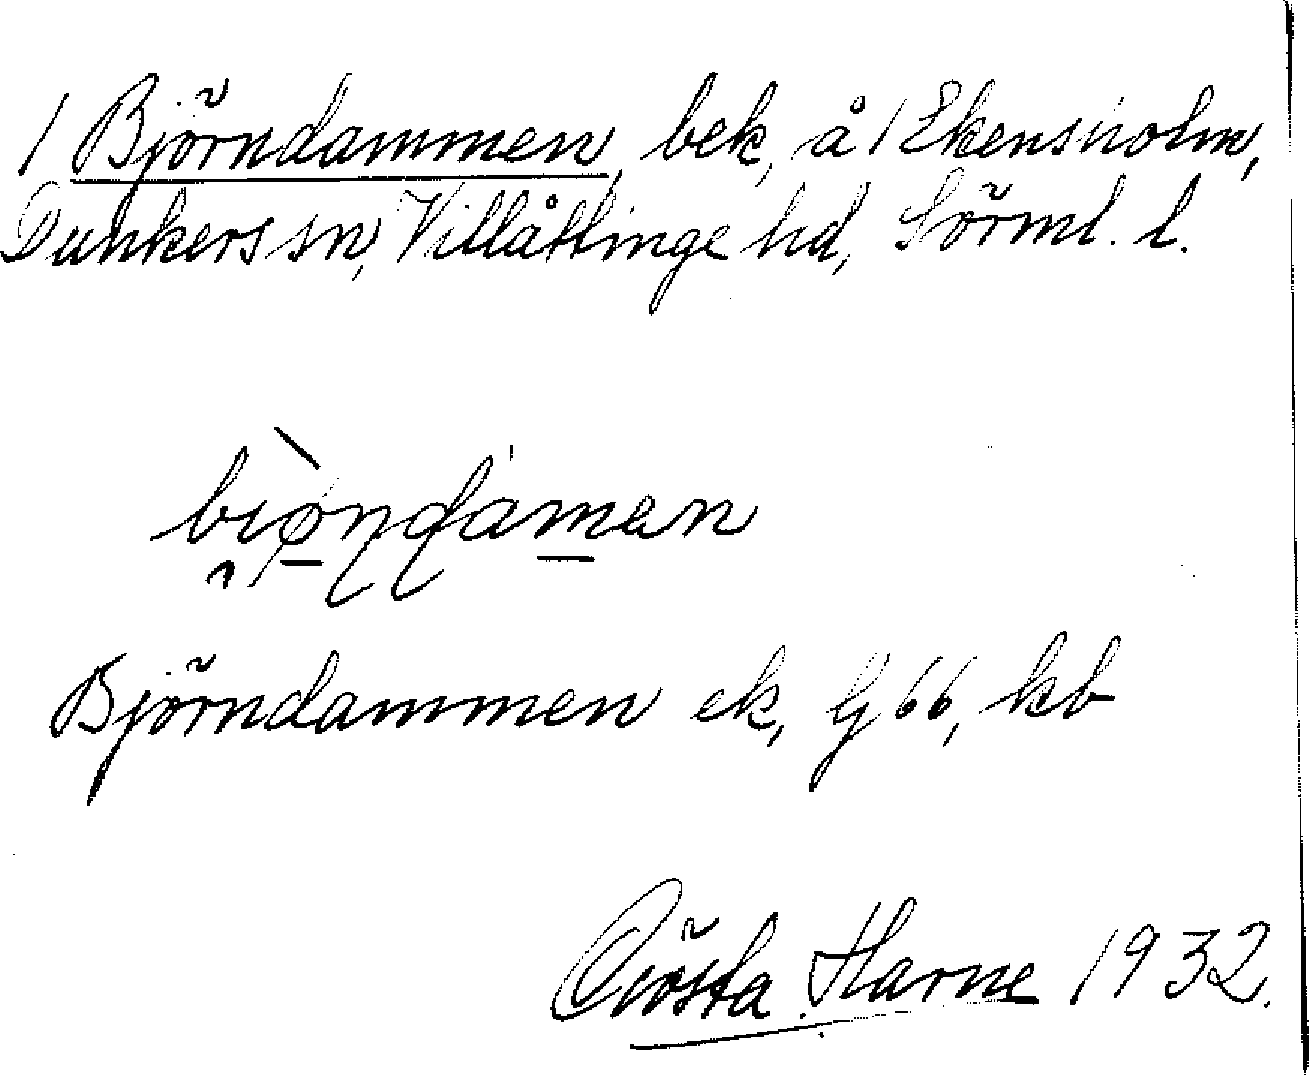 1 Björndammen, bek, å 1 Ekensholm,
Dunkers sn, Villåttinge hd, Sörml. l.
Björndammen ek, G 66, kb
Gösta Harne 1932.